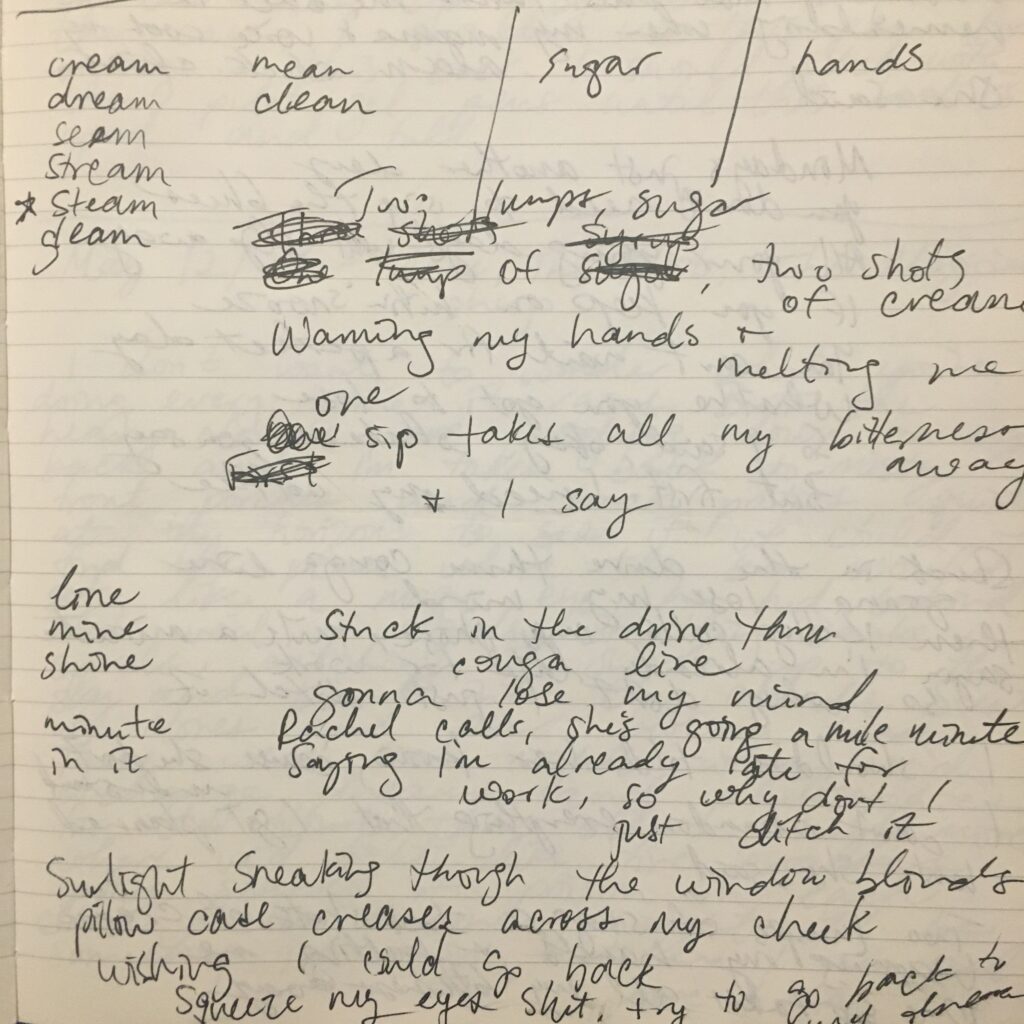 cream mean sugar hands
dream clean
seam
stream
* steam
gleam
Two lumps, sugar
shots syrup
lump of sugar, two shots
of cream
Warming my hands +
melting me
one
sip takes all my bitterness
away
+ I say
line
mine
shine
Stuck in the drive thru
conga line
gonna lose my mind
minute
in it
Rachel calls, she's going a mile minute
Saying I'm already late for
work, so why don't I
just ditch it
Sunlight Sneaking though the window blinds
pillow case creases across my cheek
wishing I could go back
Squeeze my eyes shit, try to go back to
my dream